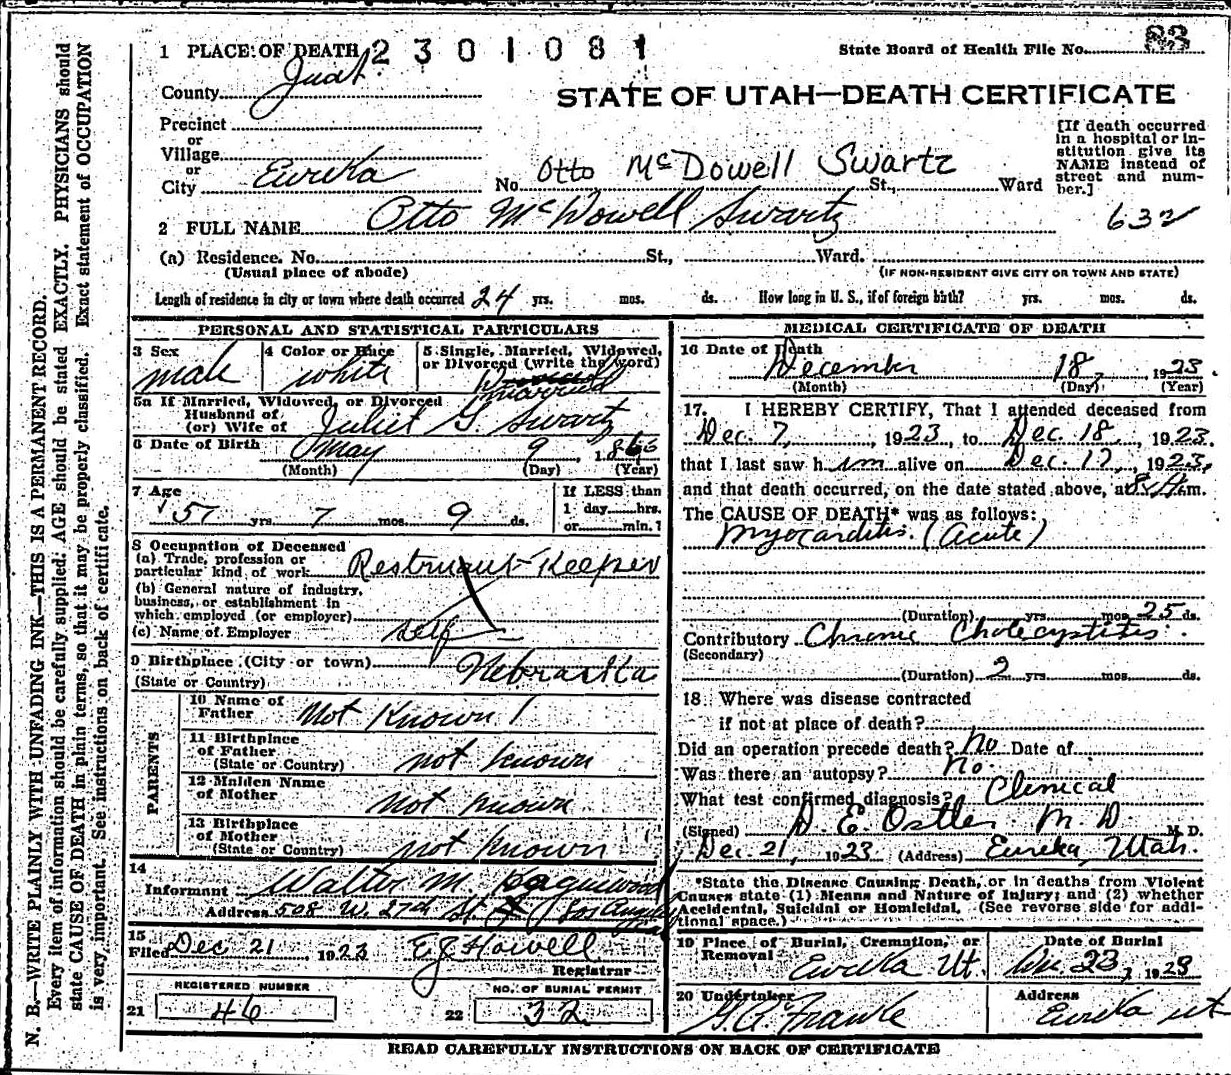 1 PLACE OF DEATH 2301081
State Board of Health File No. 83
County Juab
STATE OF UTAH—DEATH CERTIFICATE
Precinct
or
Village
or
City Eureka
No. Otto McDowell Swartz St., Ward
[If death occurred in a hospital or in-
stitution give its
NAME instead of
street and num-
ber.]
2 FULL NAME Otto McDowell Swartz
632
(a) Residence. No. St., Ward.
(Usual place of abode) (IF NON-RESIDENT GIVE CITY OR TOWN AND STATE)
Length of residence in city or town where death occurred 24 yrs. mos. ds. How long in U. S., if of foreign birth? yrs. mos. ds.
PERSONAL AND STATISTICAL PARTICULARS
3 Sex
male
4 Color or Race
white
5 Single, Married, Widowed,
or Divorced (write the word)
married
5a If Married, Widowed, or Divorced
Husband of
(or) Wife of Juliet G. Swartz
6 Date of Birth May 9, 1866
(Month) (Day) (Year)
7 Age
57 yrs. 7 mos. 9 ds.
If LESS than
1 day hrs.
or min.?
8 Occupation of Deceased
(a) Trade, profession or
particular kind of work Restruant Keeper
(b) General nature of industry,
business, or establishment in
which employed (or employer)
(c) Name of Employer self
9 Birthplace (City or town) Nebraska
(State or Country)
PARENTS
10 Name of
Father Not Known
11 Birthplace
of Father
(State or Country) not known
12 Maiden Name
of Mother not known
13 Birthplace
of Mother
(State or Country) not known
14
Informant Walter M.
Address 508 W. 27th St Los Angeles
15
Filed Dec 21, 1923 E J Howell
Registrar
REGISTERED NUMBER
21 46
NO. OF BURIAL PERMIT
22 32
MEDICAL CERTIFICATE OF DEATH
16 Date of Death
December 18, 1923
(Month) (Day) (Year)
17. I HEREBY CERTIFY, That I attended deceased from
Dec. 7, 1923, to Dec. 18, 1923,
that I last saw him alive on Dec. 17, 1923,
and that death occurred, on the date stated above, at 8 A m.
The CAUSE OF DEATH* was as follows:
Myocarditis. (Acute)
(Duration) yrs. mos. 25 ds.
Contributory Chronic Cholecystitis.
(Secondary)
(Duration) 2 yrs. mos. ds.
18 Where was disease contracted
if not at place of death?
Did an operation precede death? No Date of
Was there an autopsy? No.
What test confirmed diagnosis? Clinical
(Signed) D. E. Ostler M. D. M. D.
Dec. 21, 1923 (Address) Eureka, Utah.
*State the Disease Causing Death, or in deaths from Violent
Causes state (1) Means and Nature of Injury; and (2) whether
Accidental, Suicidal or Homicidal. (See reverse side for addi-
tional space.)
19 Place of Burial, Cremation, or
Removal
Eureka Ut.
Date of Burial
Dec. 23, 1923
20 Undertaker
Address
Eureka Ut
READ CAREFULLY INSTRUCTIONS ON BACK OF CERTIFICATE
N. B.—WRITE PLAINLY WITH UNFADING INK—THIS IS A PERMANENT RECORD.
Every item of information should be carefully supplied. AGE should be stated EXACTLY. PHYSICIANS should
state CAUSE OF DEATH in plain terms, so that it may be properly classified. Exact statement of OCCUPATION
is very important. See instructions on back of certificate.